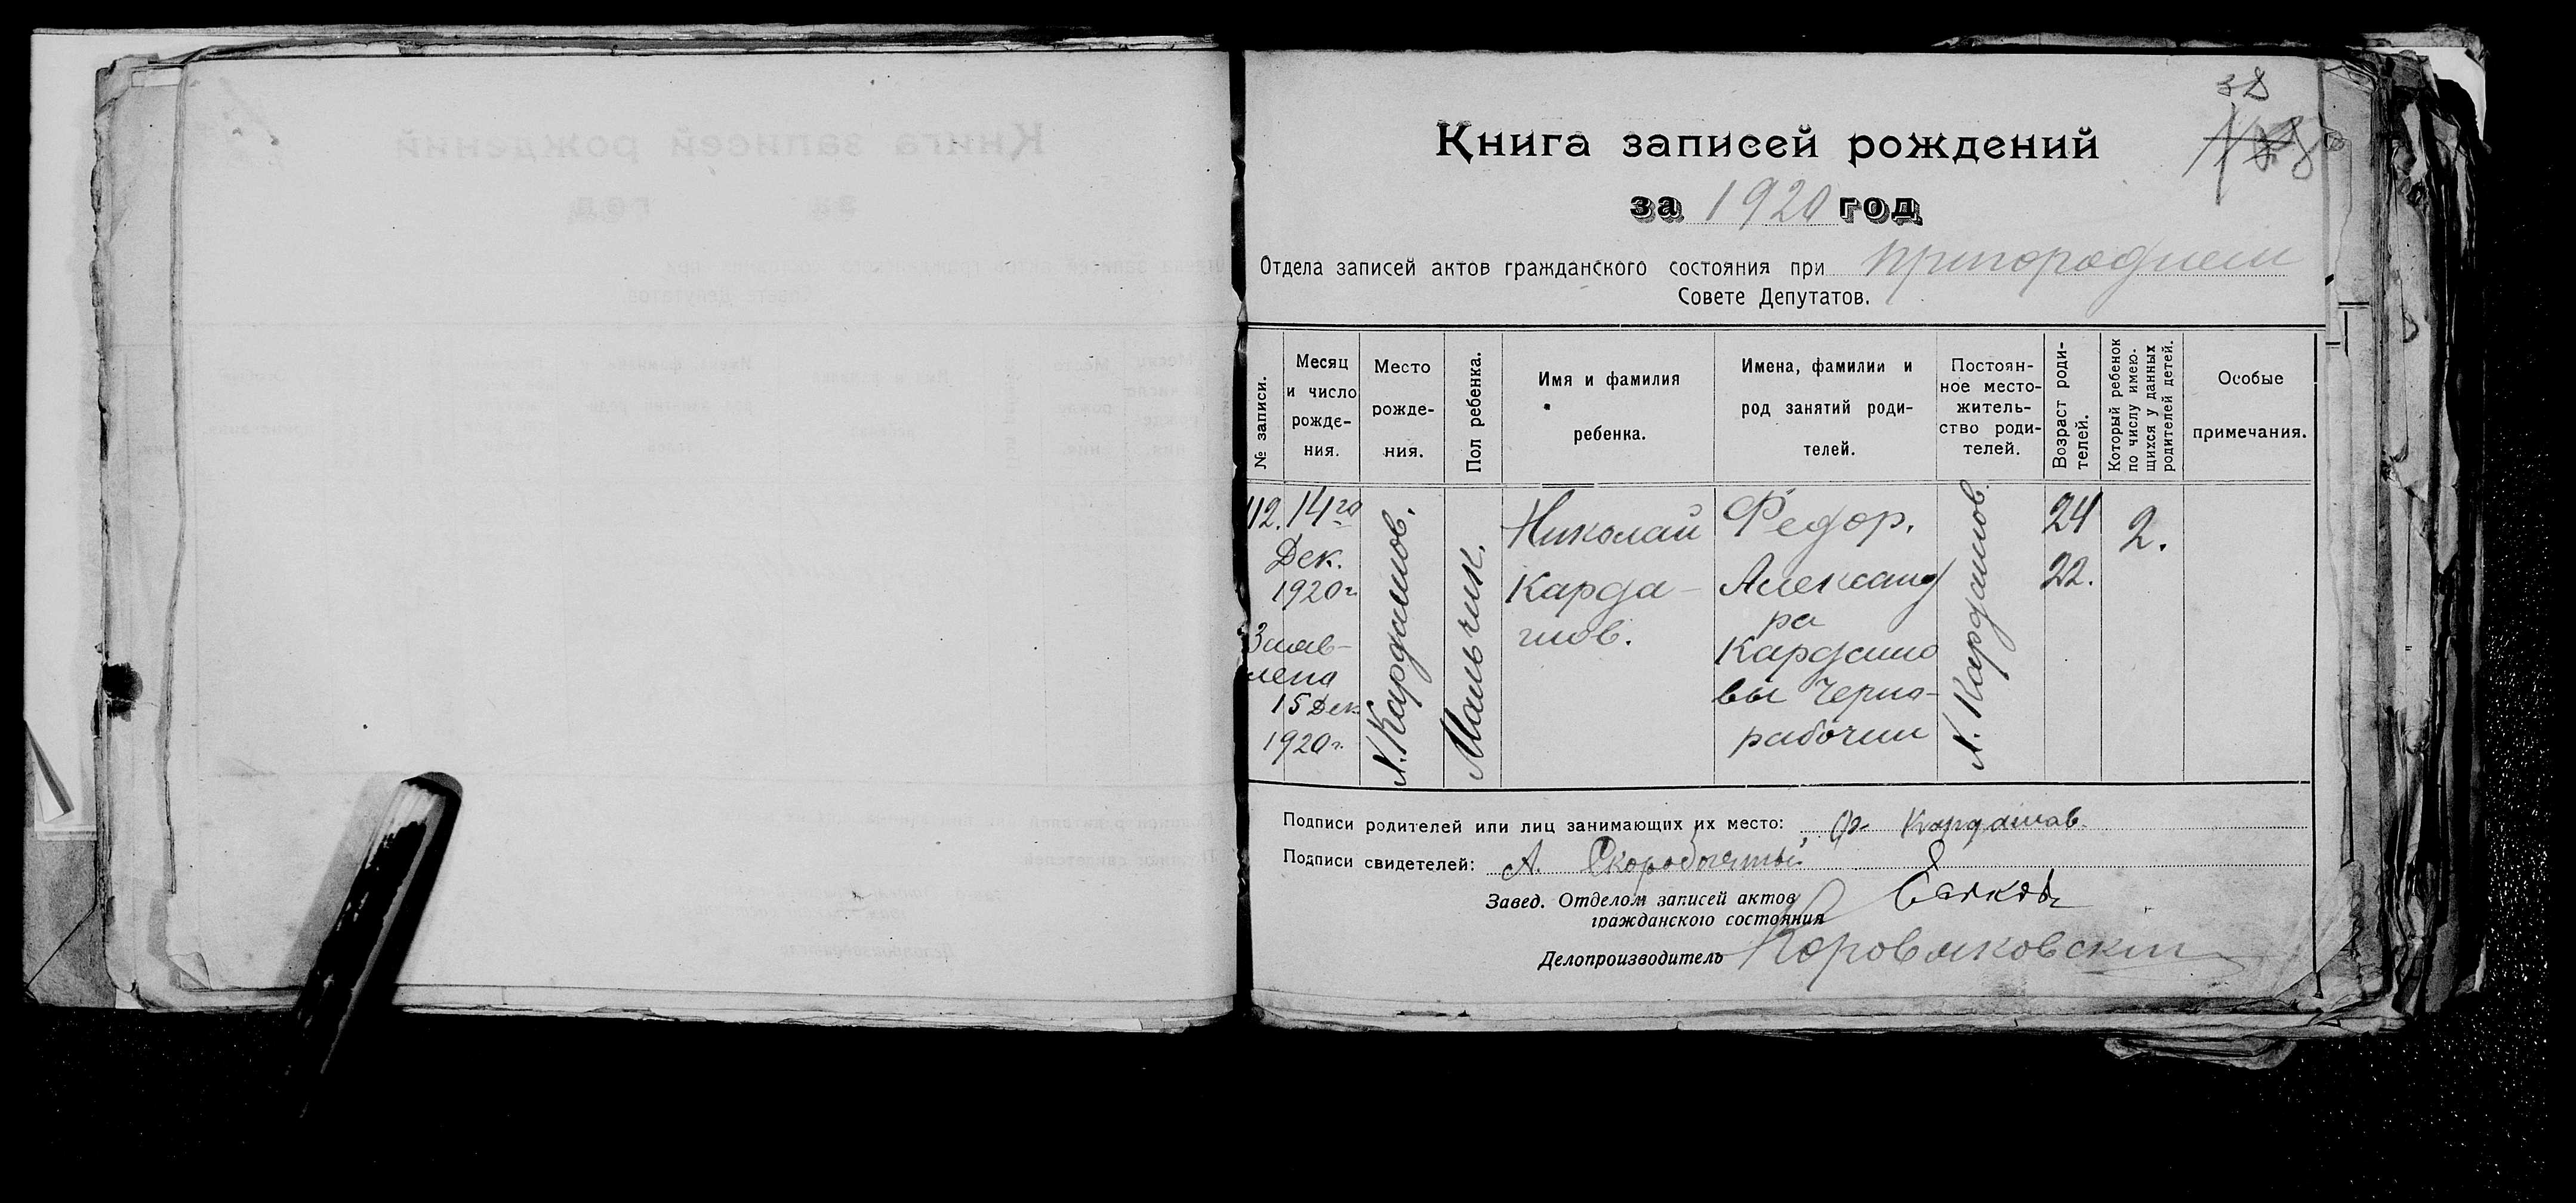 38
Книга записей рождений
за 1920 год
Отдела записей актов гражданского состояния при Пригороднем
Совете Депутатов.
№ записи.
Месяц и число рождения.
Место рождения.
Пол ребенка.
Имя и фамилия ребенка.
Имена, фамилии и род занятий родителей.
Постоянное местожительство родителей.
Возраст родителей.
Который ребенок по числу имеющихся у данных родителей детей.
Особые примечания.
112. 14го
Дек.
1920г
Заяв-
лено
15 Дек
1920г.
х. Кардашов.
Мальчик.
Николай
Карда-
шов.
Федор.
Александ
ра
Кардашо
вы Черно-
рабочии
х. Кардашов.
24
22.
2.
Подписи родителей или лиц занимающих их место: Ф. Кардашав.
Подписи свидетелей: А. Скоробогатый
Завед. Отделом записей актов
гражданского состояния
Делопроизводитель Коровяковский